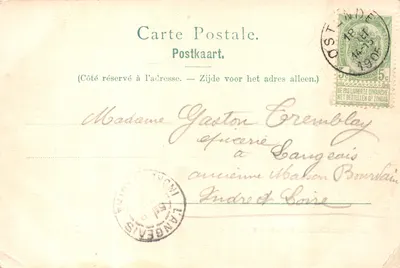 Carte Postale.
Postkaart.
(Côté réservé à l'adresse. — Zijde voor het adres alleen.)
OSTENDE
5c
NE PAS LIVRER LE DIMANCHE
NIET BESTELLEN OP ZONDAG
Madame Gaston Tremblay
épicerie
à Langeais
ancienne Maison
Indre et Loire
LANGEAIS